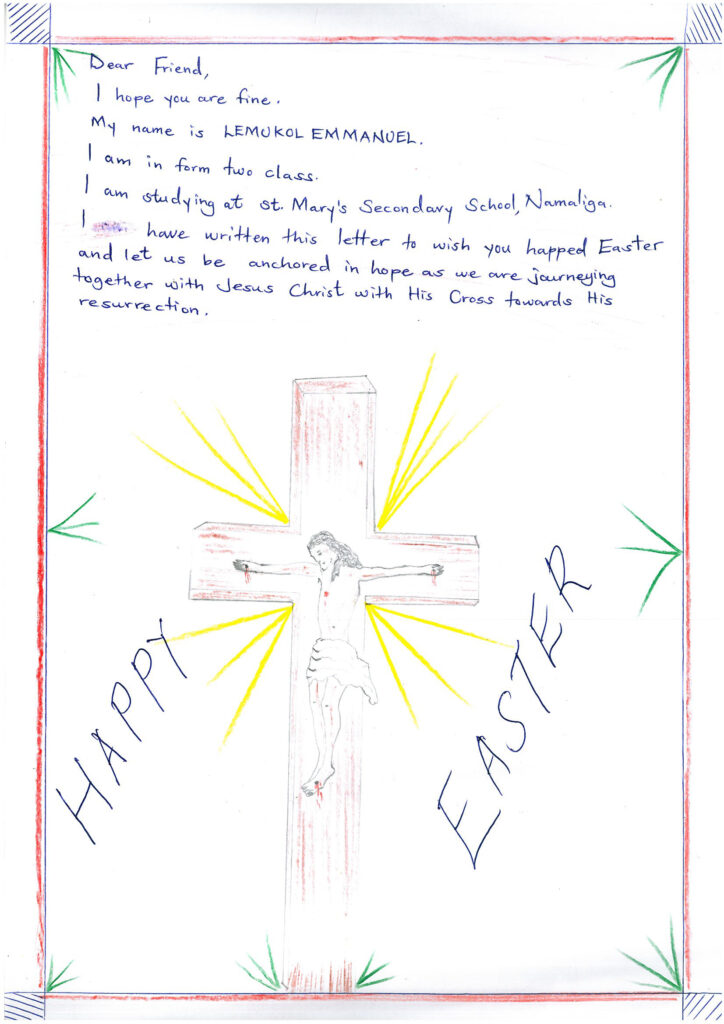 Dear Friend,
I hope you are fine.
My name is LEMUKOL EMMANUEL.
I am in form two class.
I am studying at st. Mary's Secondary School, Namaliga.
I have written this letter to wish you happed Easter
and let us be anchored in hope as we are journeying
together with Jesus Christ with His Cross towards His
resurrection.
HAPPY
EASTER